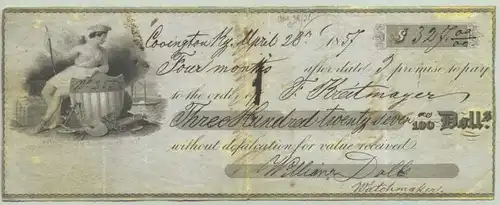 Covington Ky. April 28th 1857 $ 327.00/00
Four months after date I promise to pay
to the order of F Breitmayer
Three Hundred twenty seven 00/100 Doll.s
without defalcation for value received
William Dobb
Watchmaker